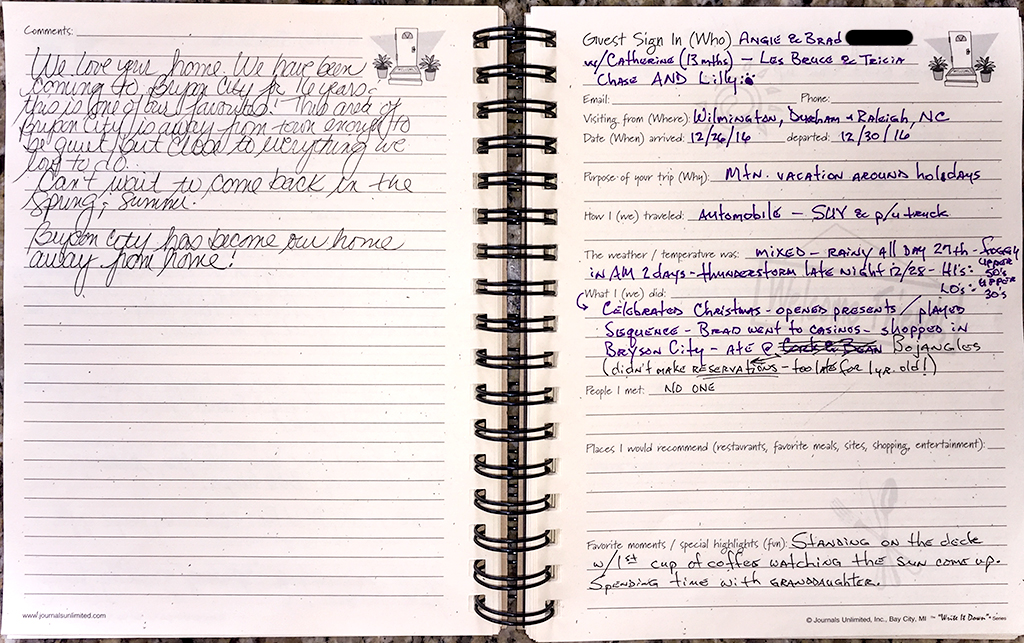 Comments:
We love your home. We have been
coming to Bryson City for 16 years.
this is one of our favorites! This area of
Bryson City is away from town enough to
be quiet but close to everything we
love to do.
Can't wait to come back in the
Spring & Summer.
Bryson City has become our home
away from home!
www.journalsunlimited.com
Guest Sign In (Who) Angie & Brad
w/Catherine (13 mths) - Les Bruce & Tricia
Chase AND Lilly
Email: Phone:
Visiting from (Where): Wilmington, Durham & Raleigh, NC
Date (When) arrived: 12/26/16 departed: 12/30/16
Purpose of your trip (Why): Mtn. vacation around holidays
How I (we) traveled: Automobile - SUV & p/u truck
The weather / temperature was: mixed - rainy all day 27th - foggy
in AM 2 days - thunderstorm late night 12/28 - HI's: upper 50's
LO's: upper 30's
What I (we) did:
Celebrated Christmas - opened presents / played
Sequence - Brad went to casinos - shopped in
Bryson City - ate @ Cork & Bean Bojangles
(didn't make reservations - too late for 1 yr. old!)
People I met: NO ONE
Places I would recommend (restaurants, favorite meals, sites, shopping, entertainment):
Favorite moments / special highlights (fun): Standing on the deck
w/ 1st cup of coffee watching the sun come up.
Spending time with granddaughter.
© Journals Unlimited, Inc., Bay City, MI ~ "Write It Down" Series